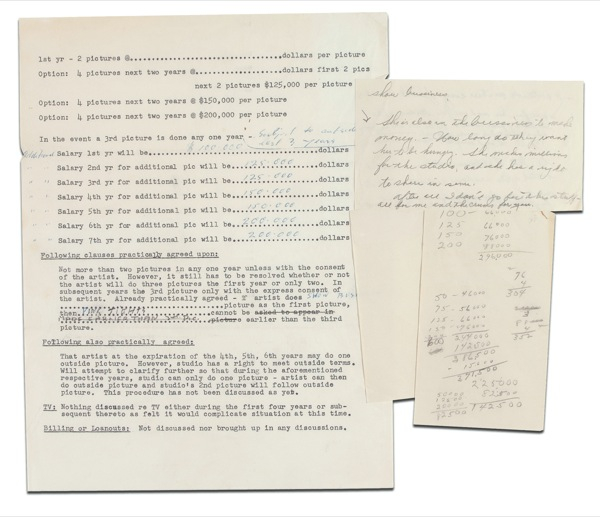 1st yr - 2 pictures @..............................dollars per picture
Option: 4 pictures next two years @..................dollars first 2 pics
next 2 pictures $125,000 per picture
Option: 4 pictures next two years @ $150,000 per picture
Option: 4 pictures next two years @ $200,000 per picture
In the event a 3rd picture is done any one year -
Salary 1st yr will be $100,000 dollars
Salary 2nd yr for additional pic will be 125.000 dollars
" " Salary 3rd yr for additional pic will be 125.000 dollars
" " Salary 4th yr for additional pic will be 150.000 dollars
" " Salary 5th yr for additional pic will be 150.000 dollars
" " Salary 6th yr for additional pic will be 200.000 dollars
" " Salary 7th yr for additional pic will be 200.000 dollars
Following clauses practically agreed upon:
Not more than two pictures in any one year unless with the consent
of the artist. However, it still has to be resolved whether or not
the artist will do three pictures the first year or only two. In
subsequent years the 3rd picture only with the express consent of
the artist. Already practically agreed - if artist does SHOW BUS
................ picture as the first picture,
then PINK TIGHTS cannot be asked to appear in
picture earlier than the third
picture.
Following also practically agreed:
That artist at the expiration of the 4th, 5th, 6th years may do one
outside picture. However, studio has a right to meet outside terms.
Will attempt to clarify further so that during the aforementioned
respective years, studio can only do one picture - artist can then
do outside picture and studio's 2nd picture will follow outside
picture. This procedure has not been discussed as yet.
TV: Nothing discussed re TV either during the first four years or sub-
sequent thereto as felt it would complicate situation at this time.
Billing or Loanouts: Not discussed nor brought up in any discussions.
show bussiness
She's also in the bussiness to make
money. - How long do they want
her to be hungry. She makes millions
for the studio, and she has a right
to share in some.
After all I don't go for
all for me and the studio for you.
125 66000
150 76000
200
76
4
304
50 - 46000
75 - 56000
142500
225000
142500